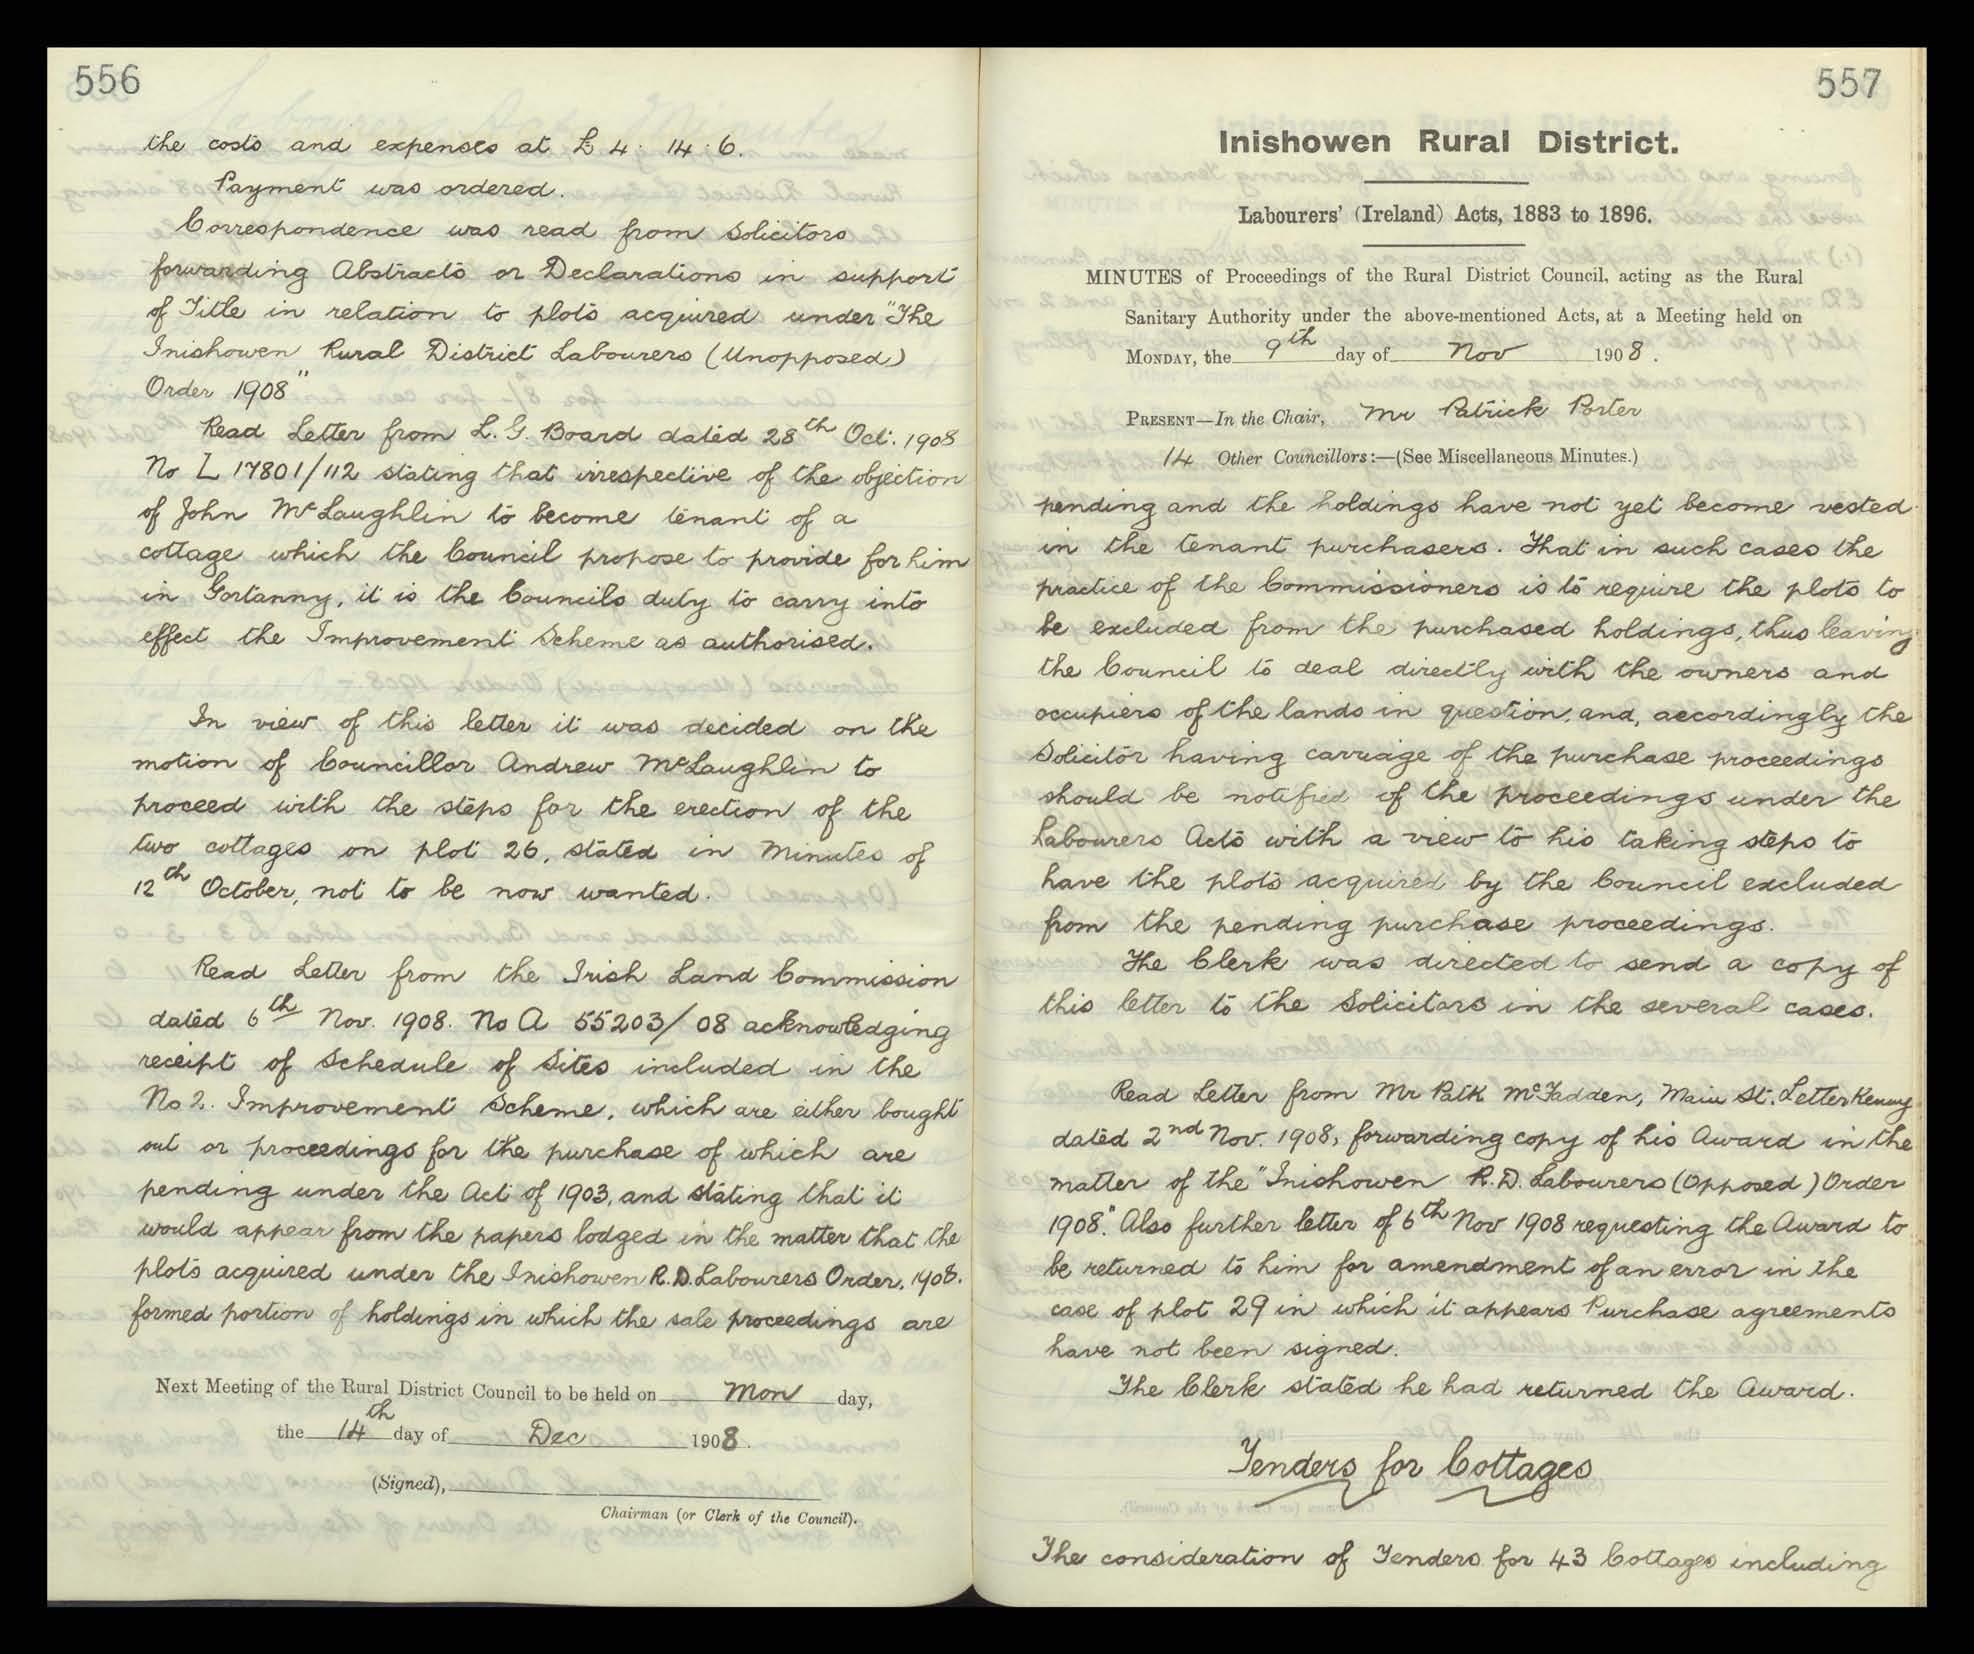 556
the costs and expenses at £ 4 . 14 . 6.
Payment was ordered.
Correspondence was read from Solicitors
forwarding Abstracts or Declarations in support
of Title in relation to plots acquired under "The
Inishowen Rural District Labourers (Unopposed)
Order 1908"
Read Letter from L. G. Board dated 28th Oct. 1908
No L 17801/112 stating that irrespective of the objection
of John McLaughlin to become tenant of a
cottage which the Council propose to provide for him
in Gortanny, it is the Councils duty to carry into
effect the Improvement Scheme as authorised.
In view of this letter it was decided on the
motion of Councillor Andrew McLaughlin to
proceed with the steps for the erection of the
two cottages on plot 26, stated in Minutes of
12th October, not to be now wanted.
Read Letter from the Irish Land Commission
dated 6th Nov. 1908. No A 55203/08 acknowledging
receipt of Schedule of Sites included in the
No 2. Improvement Scheme, which are either bought
out or proceedings for the purchase of which are
pending under the Act of 1903, and stating that it
would appear from the papers lodged in the matter that the
plots acquired under the Inishowen R.D. Labourers Order, 1908.
formed portion of holdings in which the sale proceedings are
Next Meeting of the Rural District Council to be held on Mon day,
the 14th day of Dec 1908.
(Signed),
Chairman (or Clerk of the Council).
557
Inishowen Rural District.
Labourers' (Ireland) Acts, 1883 to 1896.
MINUTES of Proceedings of the Rural District Council, acting as the Rural
Sanitary Authority under the above-mentioned Acts, at a Meeting held on
MONDAY, the 9th day of Nov 1908.
PRESENT—In the Chair, Mr Patrick Porter
14 Other Councillors:—(See Miscellaneous Minutes.)
pending and the holdings have not yet become vested
in the tenant purchasers. That in such cases the
practice of the Commissioners is to require the plots to
be excluded from the purchased holdings, thus leaving
the Council to deal directly with the owners and
occupiers of the lands in question, and, accordingly the
Solicitor having carriage of the purchase proceedings
should be notified of the proceedings under the
Labourers Acts with a view to his taking steps to
have the plots acquired by the Council excluded
from the pending purchase proceedings.
The Clerk was directed to send a copy of
this letter to the Solicitors in the several cases.
Read Letter from Mr Patk McFadden, Main St. Letterkenny
dated 2nd Nov. 1908, forwarding copy of his Award in the
matter of the "Inishowen R.D. Labourers (Opposed) Order
1908." Also further letter of 6th Nov 1908 requesting the Award to
be returned to him for amendment of an error in the
case of plot 29 in which it appears Purchase agreements
have not been signed.
The Clerk stated he had returned the Award.
Tenders for Cottages
The consideration of Tenders for 43 Cottages including